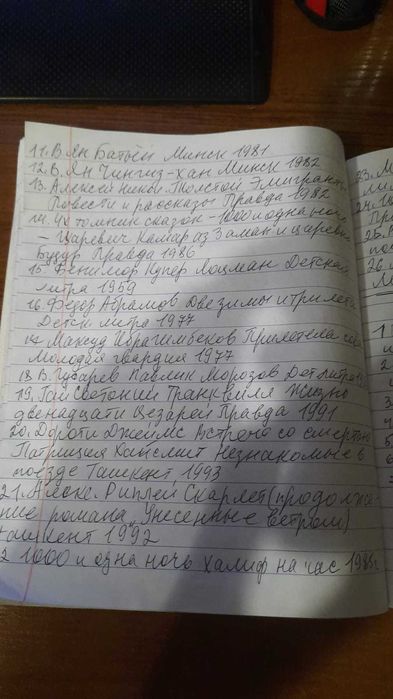 11. В. Ян Батый Минск 1981
12. В. Ян Чингиз-хан Минск 1982
13. Алексей Никол. Толстой Эмигранты
Повести и рассказы Правда 1982
14. 4х томник сказок - 1000 и одна ночь
- Царевич Камар аз Заман и царевна
Будур Правда 1986
15. Фенимор Купер Лоцман Детская
литра 1959
16 Федор Абрамов Две зимы и три лета
Детск. литра 1977
17 Максуд Ибрагимбеков Прилетела сова
Молодая гвардия 1977
18 В. Губарев Павлик Морозов Дет литра
19. Гай Светоний Транквилл Жизнь
двенадцати Цезарей Правда 1991
20. Дороти Джеймс Встреча со смертью
Патриция Хайсмит Незнакомые в
поезде Ташкент, 1993
21. Алекс. Риплей Скарлет (продолже-
ние романа „Унесенные ветром)
Ташкент 1992
2 1000 и одна ночь Халиф на час 1985г
23. М
ми
24. 1
Пр
25.
по
26
М
1
2
3
4
5
6